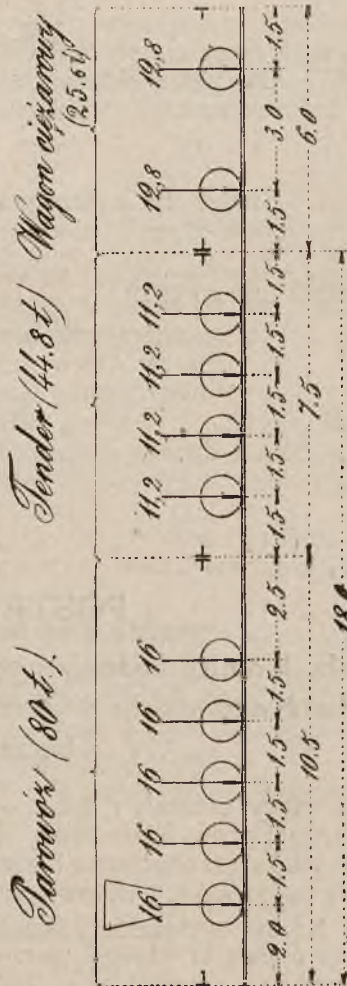 Parowóz (80 t.). Tender (44.8 t) Wagon ciężarowy
(25.6 t)
16 16 16 16 16 11,2 11,2 11,2 11,2 12,8 12,8
2.0 1.5 1.5 1.5 1.5 2.5 1.5 1.5 1.5 1.5 1.5 1.5 3.0 1.5
10.5 7.5 6.0
18.0